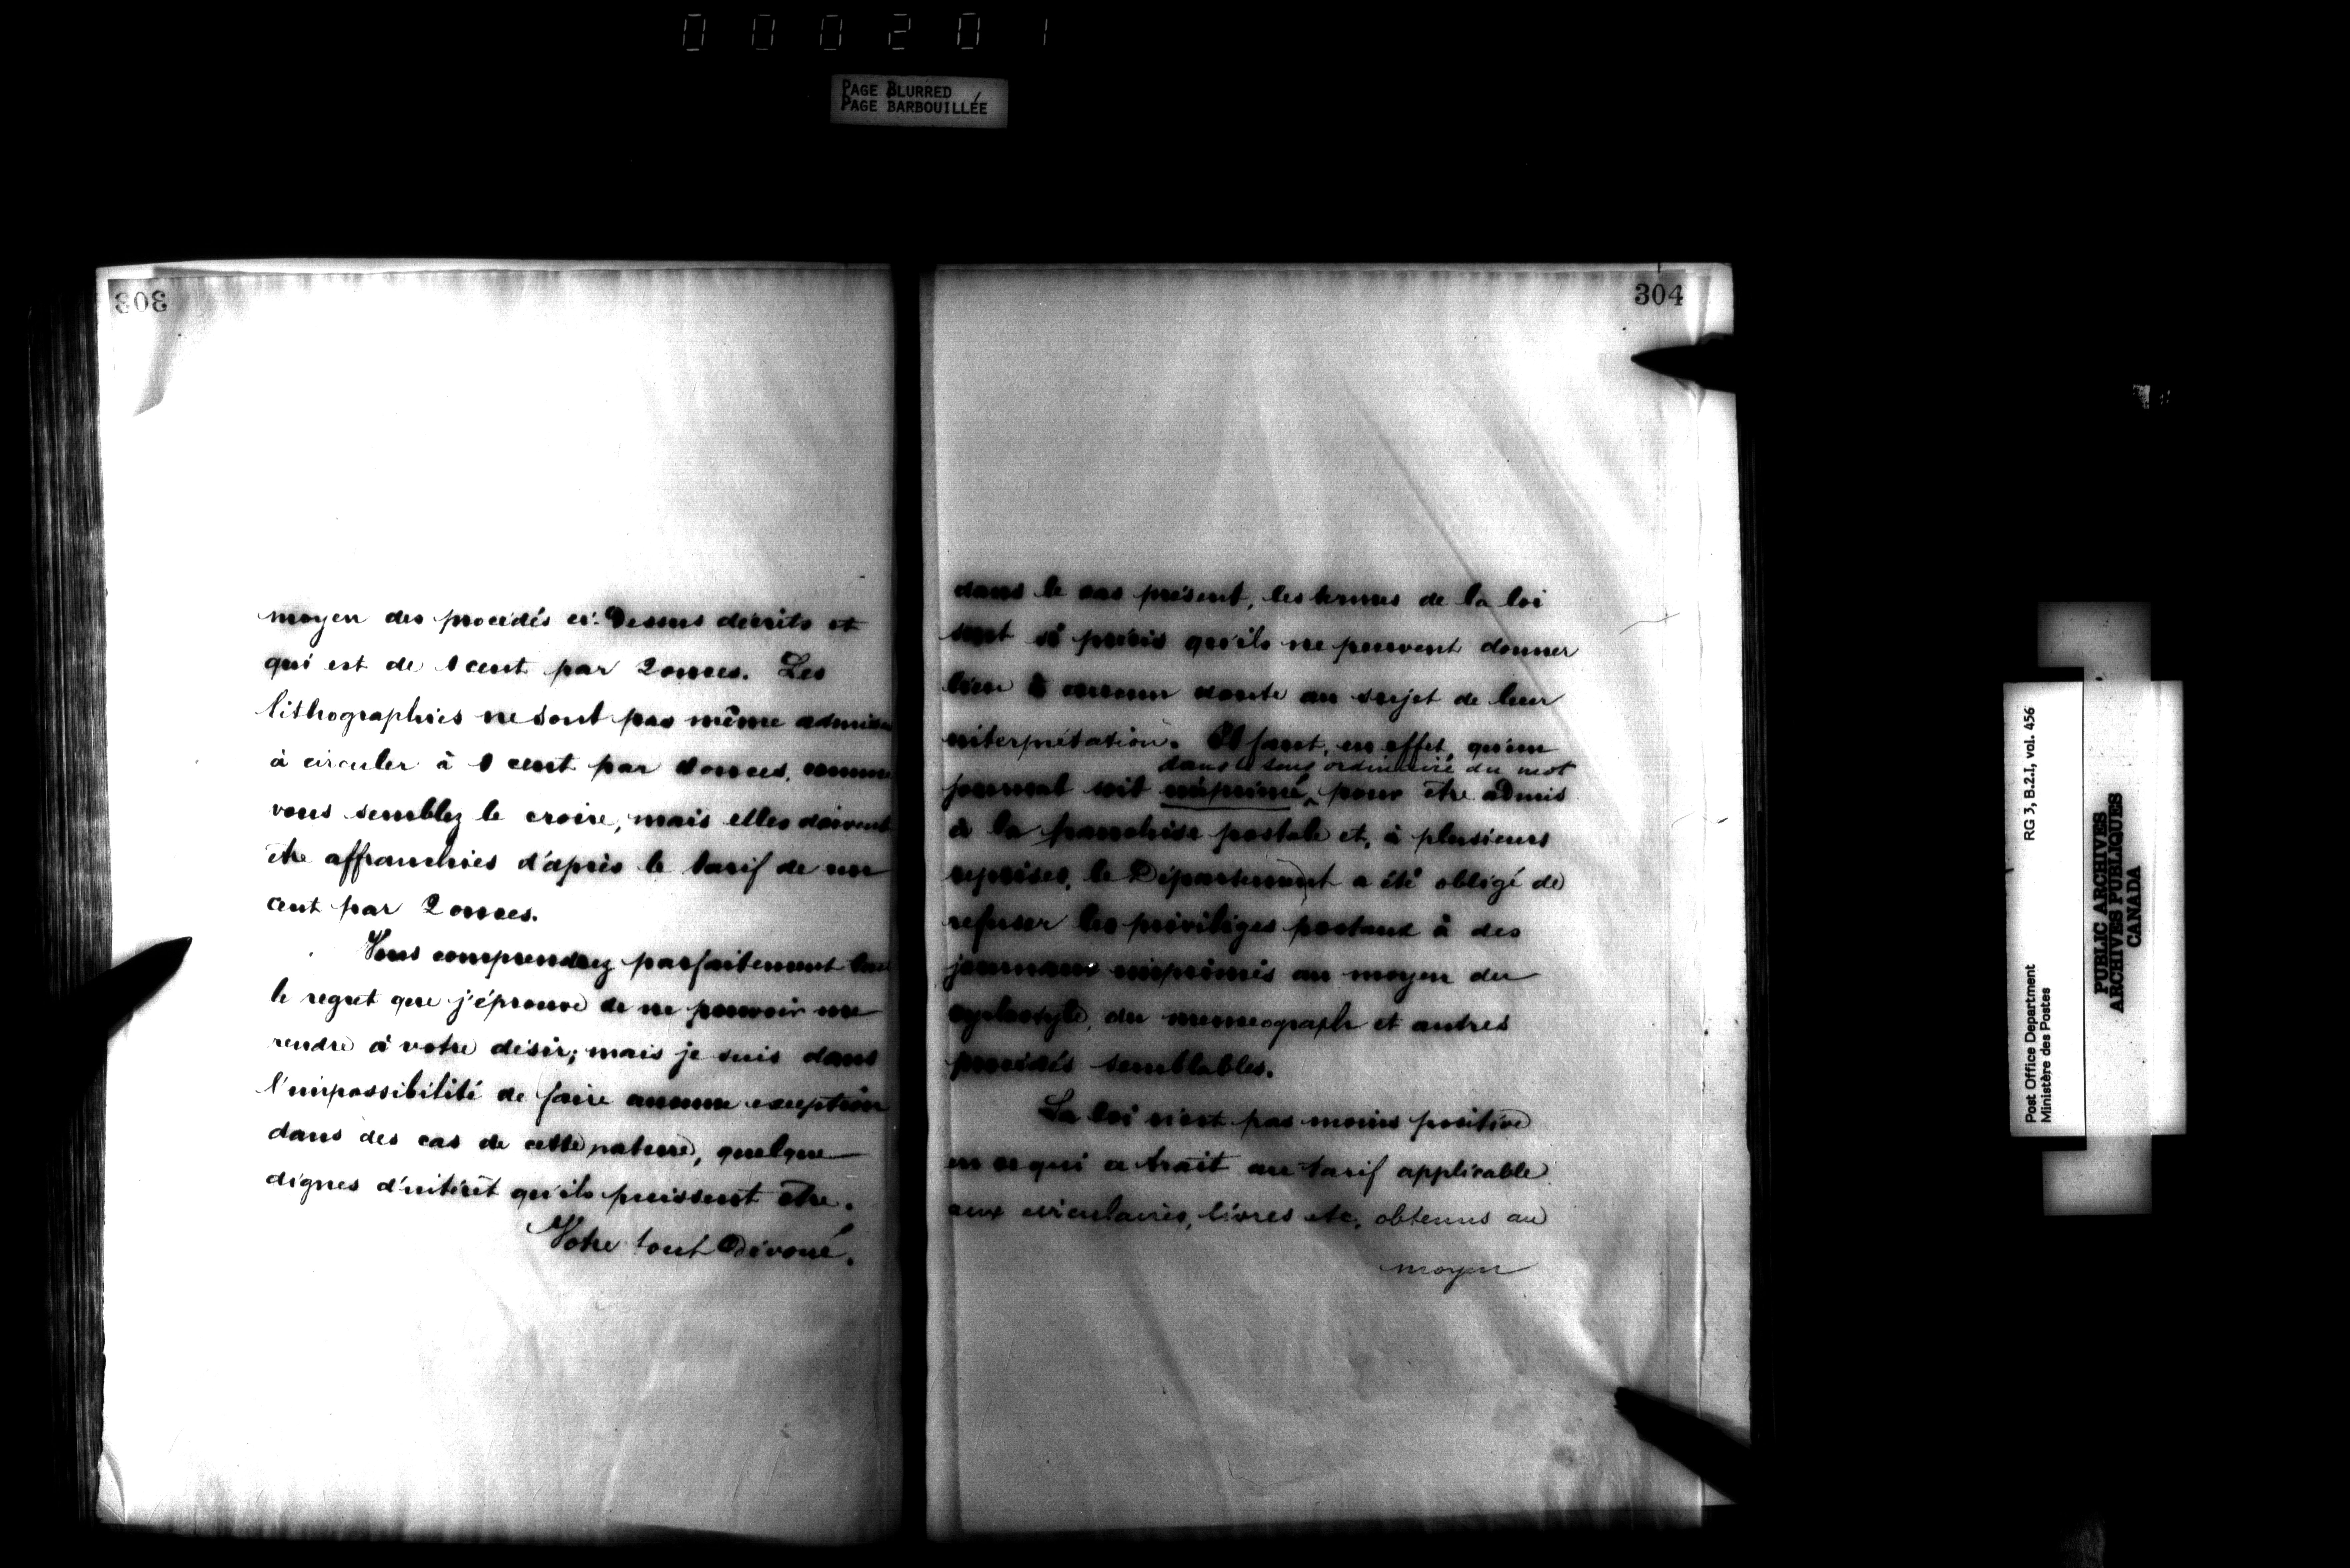 000201
PAGE BLURRED
PAGE BARBOUILLÉE
303
moyen des procédés ci-dessus décrits et
qui est de 1 cent par 2 onces. Les
lithographies ne sont pas même admises
à circuler à 1 cent par onces, comme
vous semblez le croire, mais elles doivent
être affranchies d'après le tarif de un
cent par 2 onces.
Vous comprendrez parfaitement tout
le regret que j'éprouve de ne pouvoir me
rendre à votre désir; mais je suis dans
l'impossibilité de faire aucune exception
dans des cas de cette nature, quelque
dignes d'intérêt qu'ils puissent être.
Votre tout dévoué.
304
dans le cas présent, les termes de la loi
sont si précis qu'ils ne peuvent donner
lieu à aucun doute au sujet de leur
interprétation. Il faut, en effet, qu'un
dans le sens ordinaire du mot
journal soit imprimé, pour être admis
à la franchise postale et, à plusieurs
reprises, le Département a été obligé de
refuser les privilèges postaux à des
journaux imprimés au moyen du
cyclostyle, du mimeograph et autres
procédés semblables.
La loi n'est pas moins positive
en ce qui a trait au tarif applicable
aux circulaires, livres etc, obtenus au
moyen
Post Office Department
Ministère des Postes
RG 3, B.2.I, vol. 456
PUBLIC ARCHIVES
ARCHIVES PUBLIQUES
CANADA